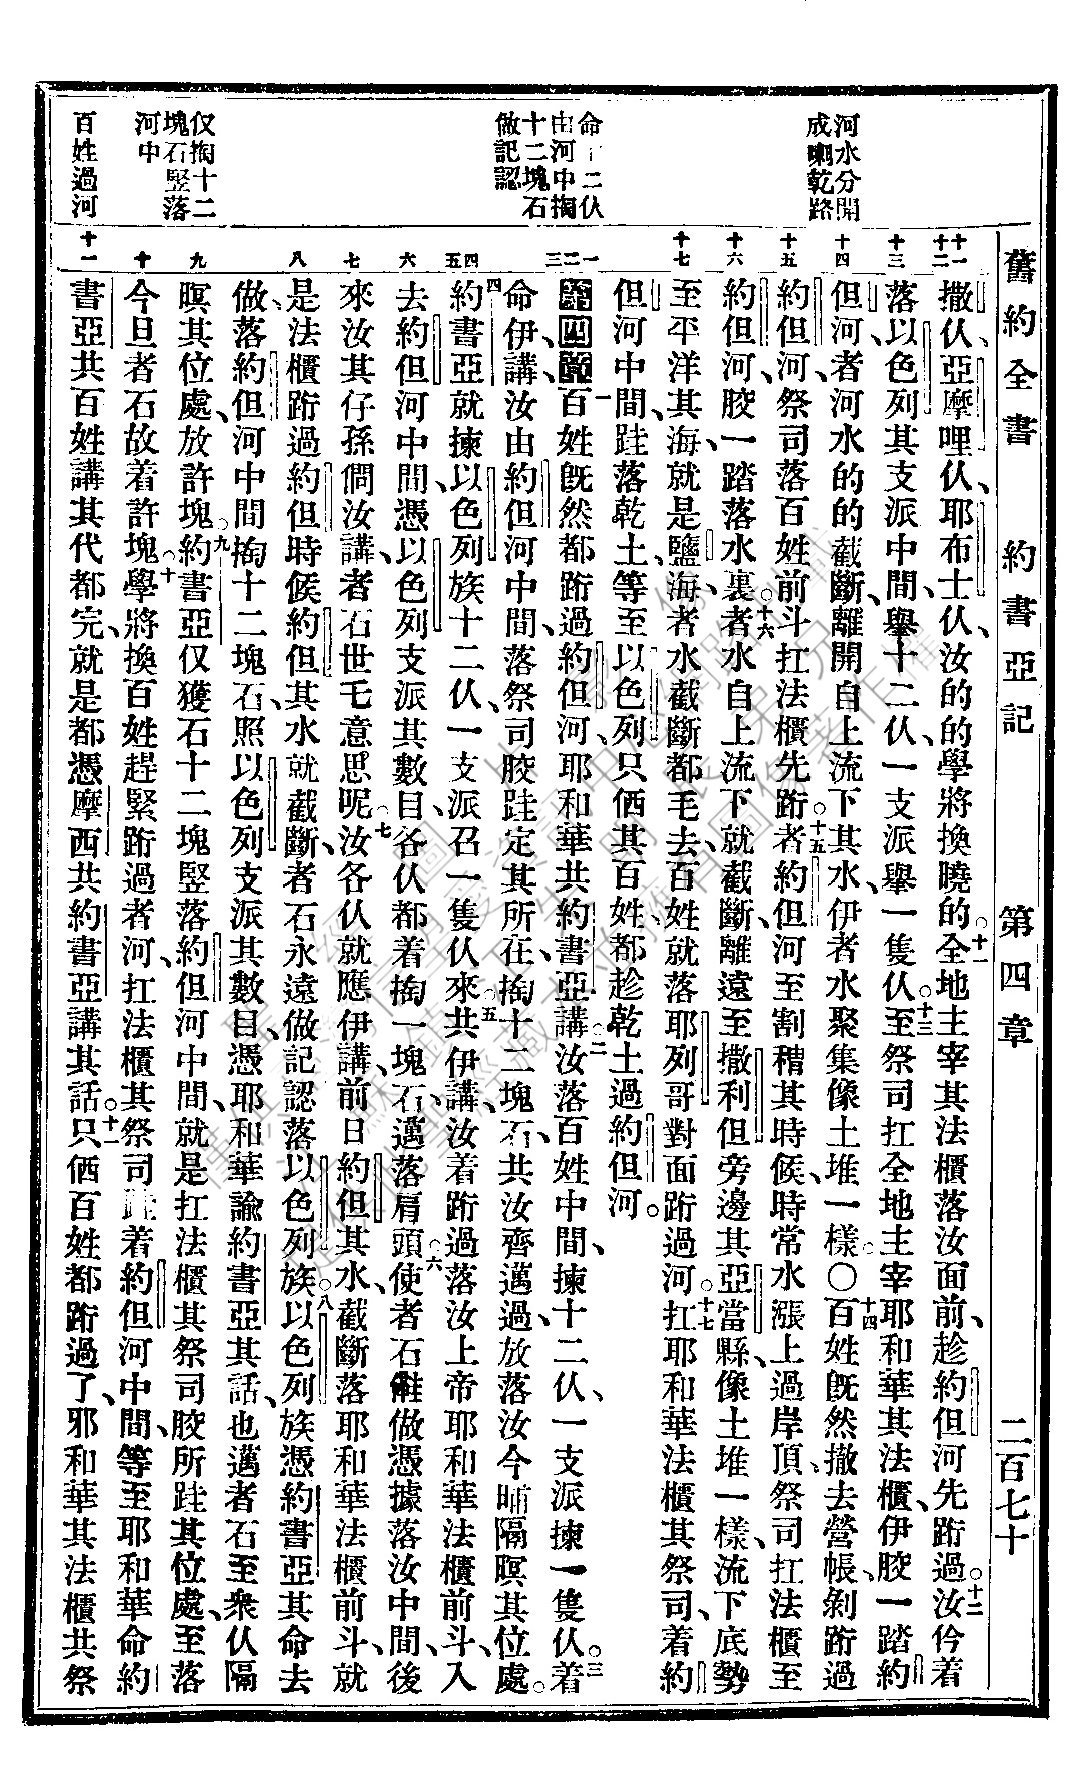 舊約全書 約書亞記 第四章 二百七十
河水分開
成喇乾路
命十二伙
由河中掏
十二塊石
做記認
仅掏十二
塊石竪落
河中
百姓過河
十一 十二 十三 十四 十五 十六 十七 一 二 三 四 五 六 七 八 九 十 十一
撒伙、亞摩哩伙、耶布士伙、汝的的學將換曉的。十一全地主宰其法櫃落汝面前、趁約但河先跨過。十二汝伶着
落以色列其支派中間、舉十二伙、一支派舉一隻伙。十三至祭司扛全地主宰耶和華其法櫃、伊骹一踏約
但河、者河水的的截斷、離開自上流下其水、伊者水聚集像土堆一樣。〇十四百姓旣然撤去營帳、剝跨過
約但河、祭司落百姓前斗扛法櫃先跨。十五者約但河至割稽其時候、時常水漲上過岸頂、祭司扛法櫃至
約但河、骹一踏落水裏。十六者水自上流下就截斷、離遠至撒利但旁邊其亞當縣、像土堆一樣、流下底勢
至平洋其海、就是鹽海、者水截斷都毛去、百姓就落耶列哥對面跨過河。十七扛耶和華法櫃其祭司、着約
但河中間、跬落乾土、等至以色列只㑚其百姓、都趁乾土過約但河。
第四章 一百姓旣然都跨過約但河、耶和華共約書亞講、二汝落百姓中間、揀十二伙、一支派揀一隻伙。三着
命伊講、汝由約但河中間、落祭司骹跬定其所在、掏十二塊石、共汝齊邁過、放落汝今晡隔暝其位處。
四約書亞就揀以色列族十二伙、一支派召一隻伙來。五共伊講、汝着跨過落汝上帝耶和華法櫃前斗、入
去約但河中間、憑以色列支派其數目、各伙都着掏一塊石、邁落肩頭。六使者石做憑據落汝中間、後
來汝其仔孫儞汝講、者石世乇意思呢。七汝各伙就應伊講、前日約但其水、截斷落耶和華法櫃前斗、就
是法櫃跨過約但時候、約但其水就截斷、者石永遠做記認落以色列族。八以色列族憑約書亞其命去
做、落約但河中間掏十二塊石、照以色列支派其數目、憑耶和華諭約書亞其話、也邁者石至衆伙隔
暝其位處、放許塊。九約書亞仅獲石十二塊竪落約但河中間、就是扛法櫃其祭司骹所跬其位處、至落
今旦者石故着許塊。十學將換百姓趕緊跨過者河、扛法櫃其祭司跬着約但河中間、等至耶和華命約
書亞共百姓講其代都完、就是都憑摩西共約書亞講其話。十一只㑚百姓都跨過了、耶和華其法櫃共祭